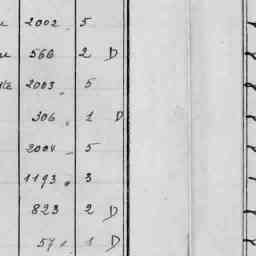 2002 5
566 2 D
2003 5
306 1 D
2004 5
1193 3
823 2 D
57 1 D